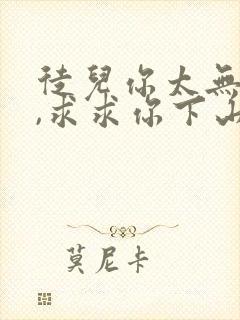 徒兒你太無
,求求你下山
莫尼卡